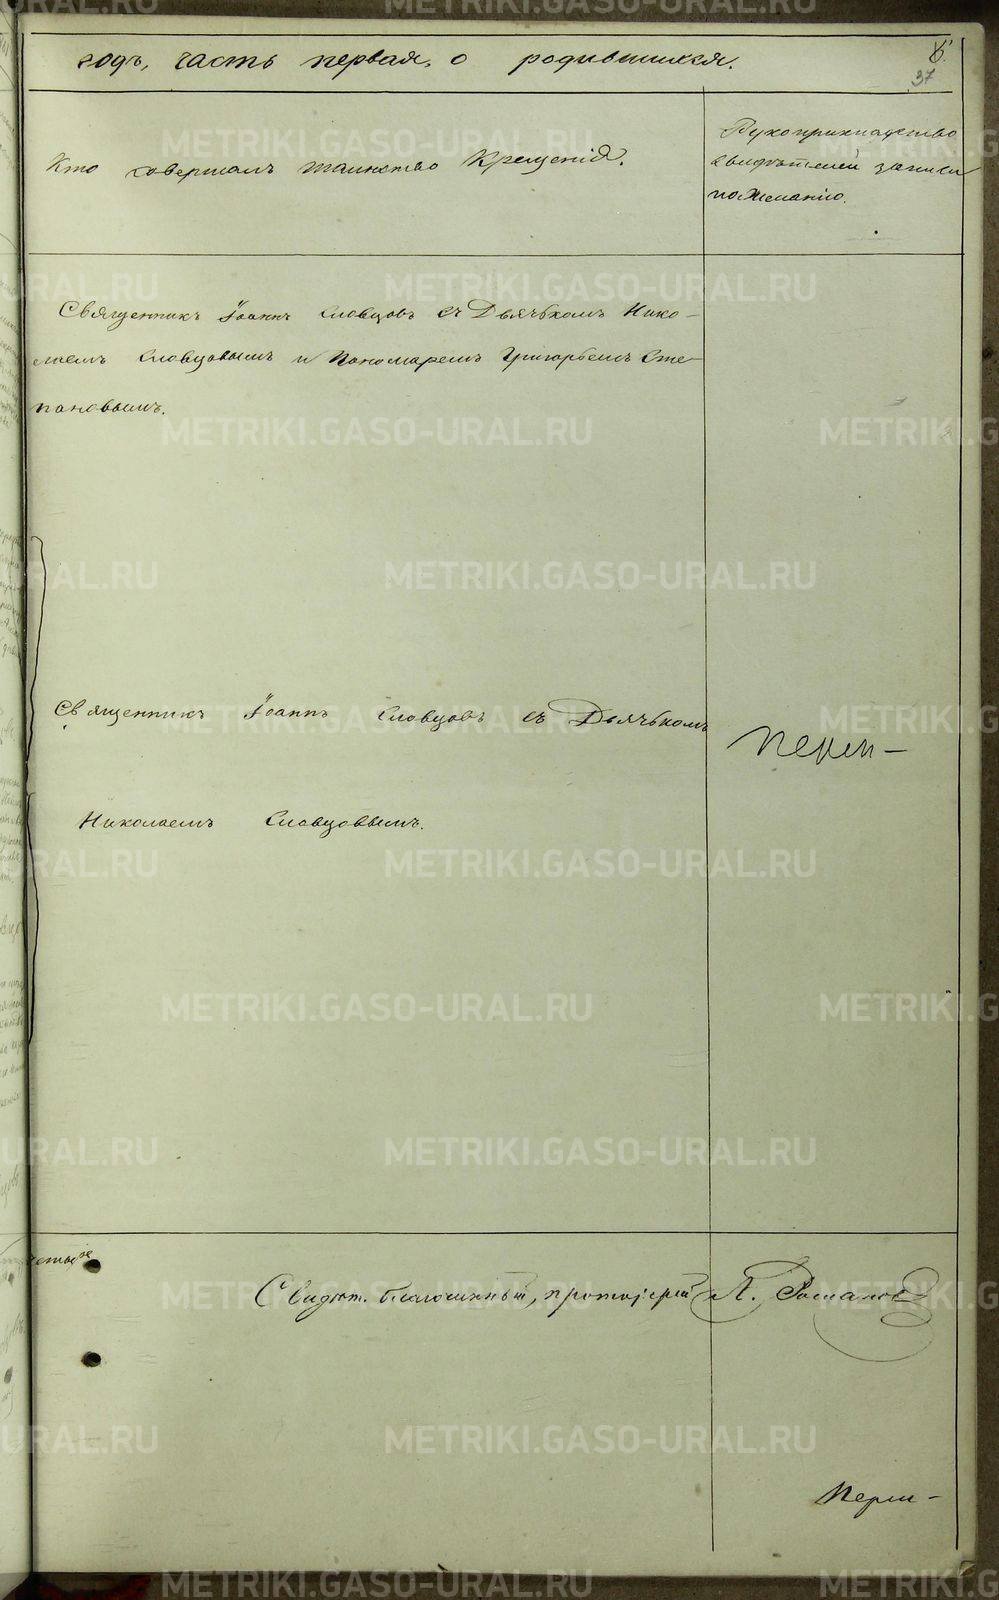 годъ, часть первая, о родившихся.
6.
37
Кто совершалъ таинство Крещенія.
Рукоприкладство
свидѣтелей записи
по желанію.
Священникъ Іоаннъ Словцовъ съ Дьячькомъ Нико-
лаемъ Словцовымъ и Пономаремъ Григорьемъ Сте-
пановымъ.
Священникъ Іоаннъ Словцовъ съ Дьячькомъ
Перм-
Николаемъ Словцовымъ.
Свидѣт. благочинный, протоіерей А. Романов
Перм-
METRIKI.GASO-URAL.RU